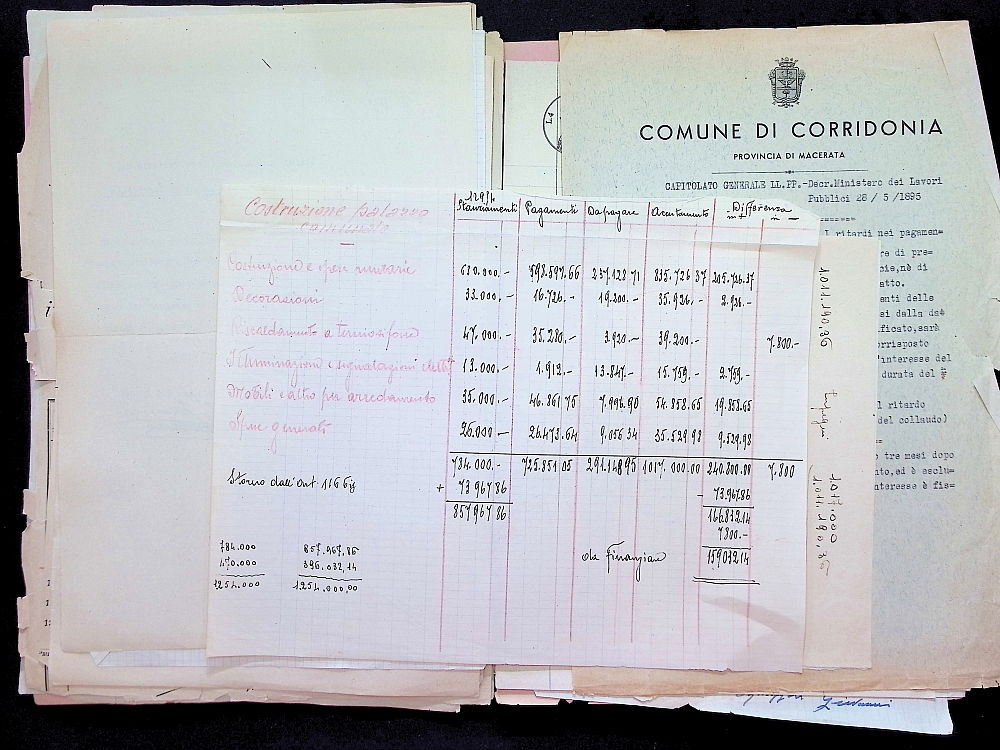 COMUNE DI CORRIDONIA
PROVINCIA DI MACERATA
CAPITOLATO GENERALE LL.PP.-Decr.Ministero dei Lavori
Pubblici 28 / 5 /1895
I ritardi nei pagamen=
re di pre=
cie,nè di
atto.
enti delle
si dalla da
ificato,sarà
orrisposto
'interesse del
durata del
l ritardo
del collaudo)
tre mesi dopo
nto,ed è esclu=
nteresse è fis=
L4
Costruzione palazzo
comunale
Stanziamenti Pagamenti Da pagare Accertamento Differenza
in + in -
Costruzione e opere murarie 680.000.- 598.597.66 237.128 71 835.726 37 215.726.37
Decorazioni 33.000.- 16.726.- 19.200.- 35.926.- 2.926.-
Riscaldamento a termosifone 47.000.- 35.280.- 3.920.- 39.200.- 7.800.-
Illuminazione e segnalazioni elettr. 13.000.- 1.912.- 13.847.- 15.759.- 2.759.-
Mobili e altro per arredamento 35.000.- 46.861 75 7.996.90 54.858.65 19.858.65
Spese generali 26.000 - 26.473.64 9.056 34 35.529 98 9.529.98
784.000.- 725.851 05 291.148 95 1017.000.00 240.800.00 7.800
Storno dall'art. 116 + 73.967 86 - 73.967.86
857.967 86 166.832.14
7800.-
da finanziare 159.032.14
784.000 857.967.86
470.000 396.032,14
1254.000 1.254.000,00
1011.190,86
impegni
1017.000
1.011.190,86